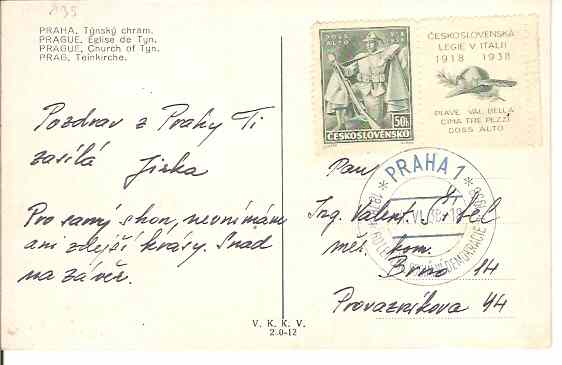 195
PRAHA, Týnský chrám.
PRAGUE, Église de Tyn.
PRAGUE, Church of Tyn.
PRAG, Teinkirche.
Pozdrav z Prahy Ti
zasílá Jirka
Pro samý shon, nevnímáme
ani zdejší krásy. Snad
na závěr.
V. K. K. V.
DOSS ALTO
50h
ČESKOSLOVENSKO
ČESKOSLOVENSKÁ
LEGIE V ITALII
1918 1938
PIAVE VAL BELLA
CIMA TRE PEZZI
DOSS ALTO
* PRAHA 1 *
DEMOKRACIE
Pan
Ing. Valent.
měs. kom.
Brno 14
Provazníkova 44